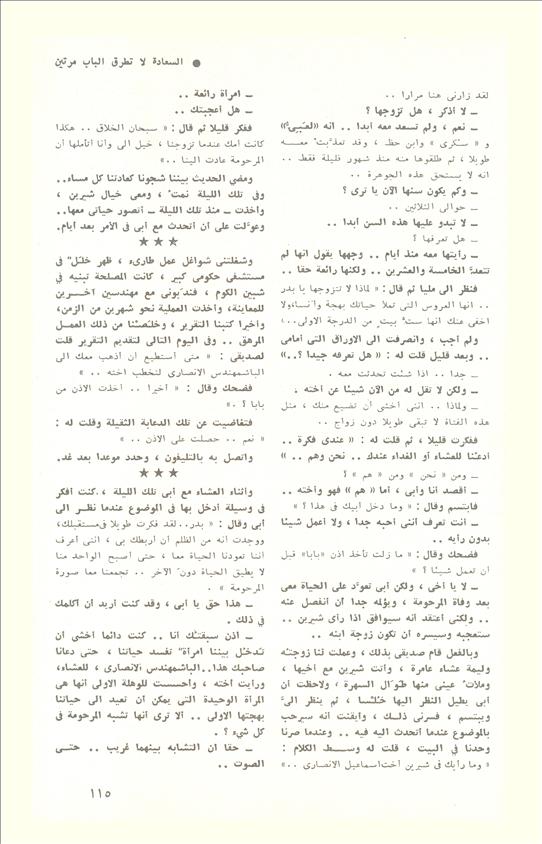 ● السعادة لا تطرق الباب مرتين
لقد زارني هنا مرارا ..
ــ لا أذكر ، هل تزوجها ؟
ــ نعم ، ولم تسعد معه أبدا .. انه «لعبي»
و « سكرى » وابن حظ ، وقد تعذبت معه
طويلا ، ثم طلقوها منه منذ شهور قليلة فقط ..
انه لا يستحق هذه الجوهرة ..
ــ وكم يكون سنها الآن يا ترى ؟
ــ حوالى الثلاثين ..
ــ لا تبدو عليها هذه السن أبدا ..
ــ هل تعرفها ؟
ــ رأيتها معه منذ أيام .. وجهها يقول انها لم
تتعد الخامسة والعشرين .. ولكنها رائعة حقا ..
فنظر الى مليا ثم قال : « لماذا لا تتزوجها يا بدر
.. انها العروس التى تملأ حياتك بهجة وأنسا، ولا
اخفى عنك انها ست بيت من الدرجة الاولى..»
ولم أجب ، وانصرفت الى الاوراق التى أمامى
.. وبعد قليل قلت له : « هل تعرفه جيدا ؟..»
ــ جدا .. اذا شئت تحدثت معه .
ــ ولكن لا تقل له من الآن شيئا عن أخته .
ــ ولماذا .. اننى أخشى أن تضيع منك ، مثل
هذه الفتاة لا تبقى طويلا دون زواج ..
ففكرت قليلا ، ثم قلت له : « عندى فكرة ..
ادعنا للعشاء أو الغداء عندك .. نحن وهم .. »
ــ ومن « نحن » ومن « هم » ؟
ــ أقصد أنا وأبى ، أما « هم » فهو وأخته ..
فابتسم وقال : « وما دخل أبيك فى هذا ؟ »
ــ أنت تعرف أننى أحبه جدا ، ولا أعمل شيئا
بدون رأيه ..
فضحك وقال : « ما زلت تأخذ اذن «بابا» قبل
أن تعمل شيئا ؟ »
ــ لا يا أخى ، ولكن أبى تعود على الحياة معى
بعد وفاة المرحومة ، ويؤلمه جدا أن أنفصل عنه
.. ولكنى أعتقد انه سيوافق اذا رأى شيرين ..
ستعجبه وسيسره أن تكون زوجة ابنه ..
وبالفعل قام صديقى بذلك ، وعملت لنا زوجته
وليمة عشاء عامرة ، وأتت شيرين مع أخيها ،
وملأت عينى منها طوال السهرة ، ولاحظت أن
أبى يطيل النظر اليها خلسا ، ثم ينظر الى
ويبتسم ، فسرنى ذلك ، وأيقنت انه سيرحب
بالموضوع عندما أتحدث اليه فيه .. وعندما صرنا
وحدنا فى البيت ، قلت له وسط الكلام :
« وما رأيك فى شيرين أخت اسماعيل الانصارى ..»
ــ امرأة رائعة ..
ــ هل أعجبتك ..
ففكر قليلا ثم قال : « سبحان الخلاق .. هكذا
كانت أمك عندما تزوجنا ، خيل الى وأنا أتأملها أن
المرحومة عادت الينا ..»
ومضى الحديث بيننا شجونا كعادتنا كل مساء..
وفى تلك الليلة نمت ، ومعى خيال شيرين ،
وأخذت ــ منذ تلك الليلة ــ أتصور حياتى معها..
وعولت على أن أتحدث مع أبى فى الامر بعد أيام.
★★★
وشغلتنى شواغل عمل طارىء ، ظهر خلل فى
مستشفى حكومى كبير ، كانت المصلحة تبنيه فى
شبين الكوم ، فندبونى مع مهندسين آخرين
للمعاينة، وأخذت العملية نحو شهرين من الزمن،
وأخيرا كتبنا التقرير ، وخلصنا من ذلك العمل
المرهق .. وفى اليوم التالى لتقديم التقرير قلت
لصديقى : « متى أستطيع أن أذهب معك الى
الباشمهندس الانصارى لنخطب أخته .. »
فضحك وقال : « أخيرا .. أخذت الاذن من
بابا ؟ .»
فتغاضيت عن تلك الدعابة الثقيلة وقلت له :
« نعم .. حصلت على الاذن .. »
واتصل به بالتليفون ، وحدد موعدا بعد غد.
★★★
وأثناء العشاء مع أبى تلك الليلة ، كنت أفكر
فى وسيلة أدخل بها فى الموضوع عندما نظر الى
أبى وقال : « بدر..لقد فكرت طويلا فى مستقبلك،
ووجدت انه من الظلم أن أربطك بى ، اننى أعرف
أننا تعودنا الحياة معا ، حتى أصبح الواحد منا
لا يطيق الحياة دون الآخر .. تجمعنا معا صورة
المرحومة »
ــ هذا حق يا أبى ، وقد كنت أريد أن أكلمك
فى ذلك .
ــ اذن سبقتك أنا .. كنت دائما أخشى أن
تدخل بيننا امرأة تفسد حياتنا ، حتى دعانا
صاحبك هذا..الباشمهندس الانصارى ، للعشاء،
ورأيت أخته ، وأحسست للوهلة الاولى أنها هى
المرأة الوحيدة التى يمكن أن تعيد الى حياتنا
بهجتها الاولى .. ألا ترى أنها تشبه المرحومة فى
كل شىء ؟ .
ــ حقا ان التشابه بينهما غريب .. حتى
الصوت ..
١١٥